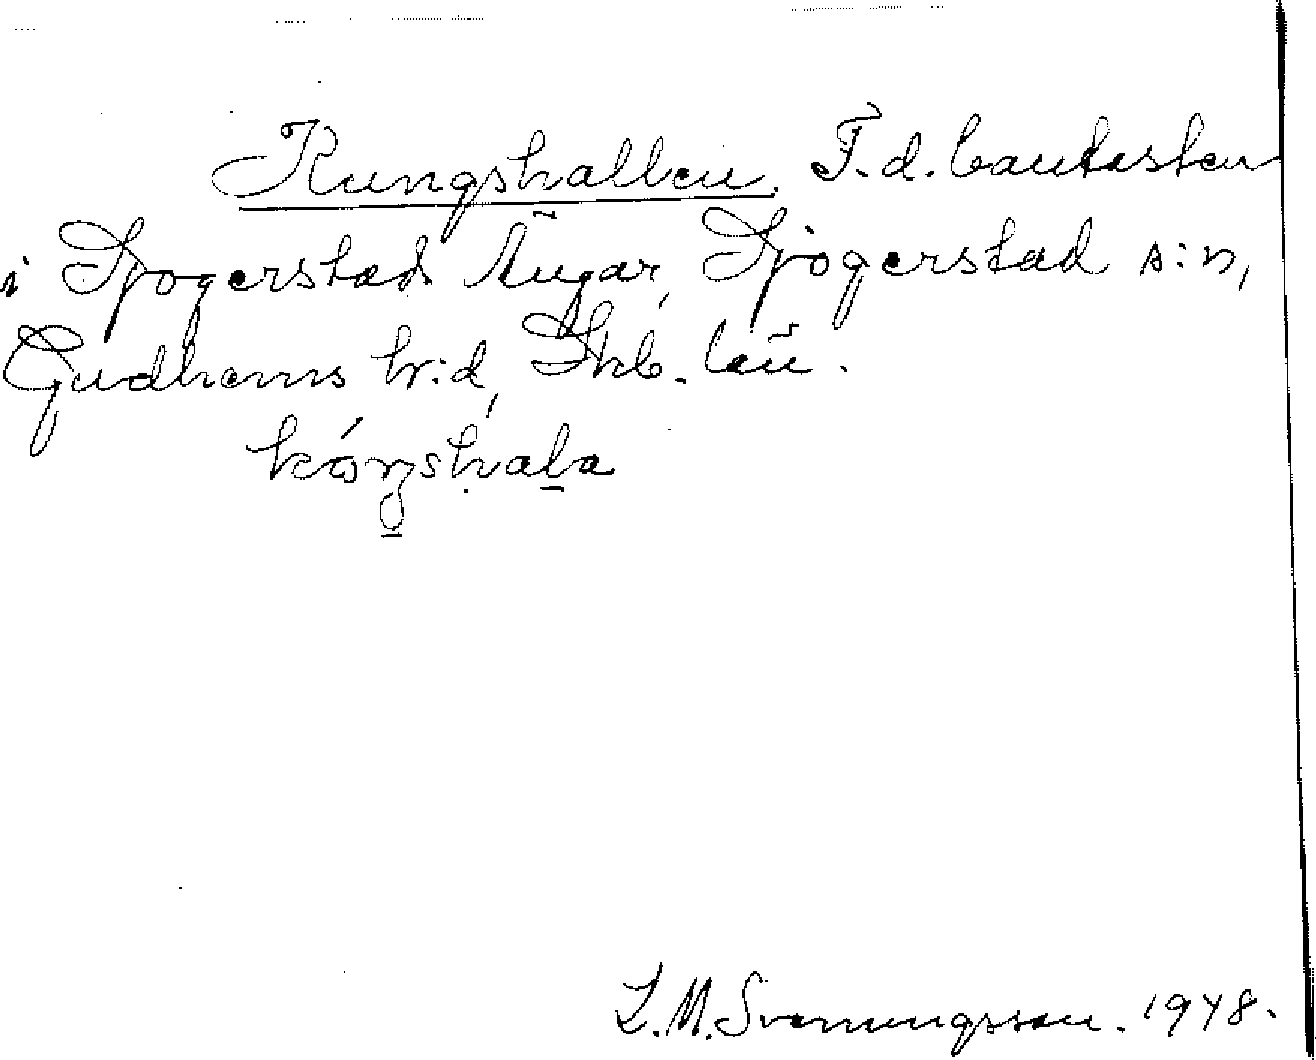 Kungshallen. F.d. bautasten
i Sjogerstads Ängar, Sjogerstad s:n,
Gudhems h:d, Skb. län.
L.M. Svenungsson. 1948.